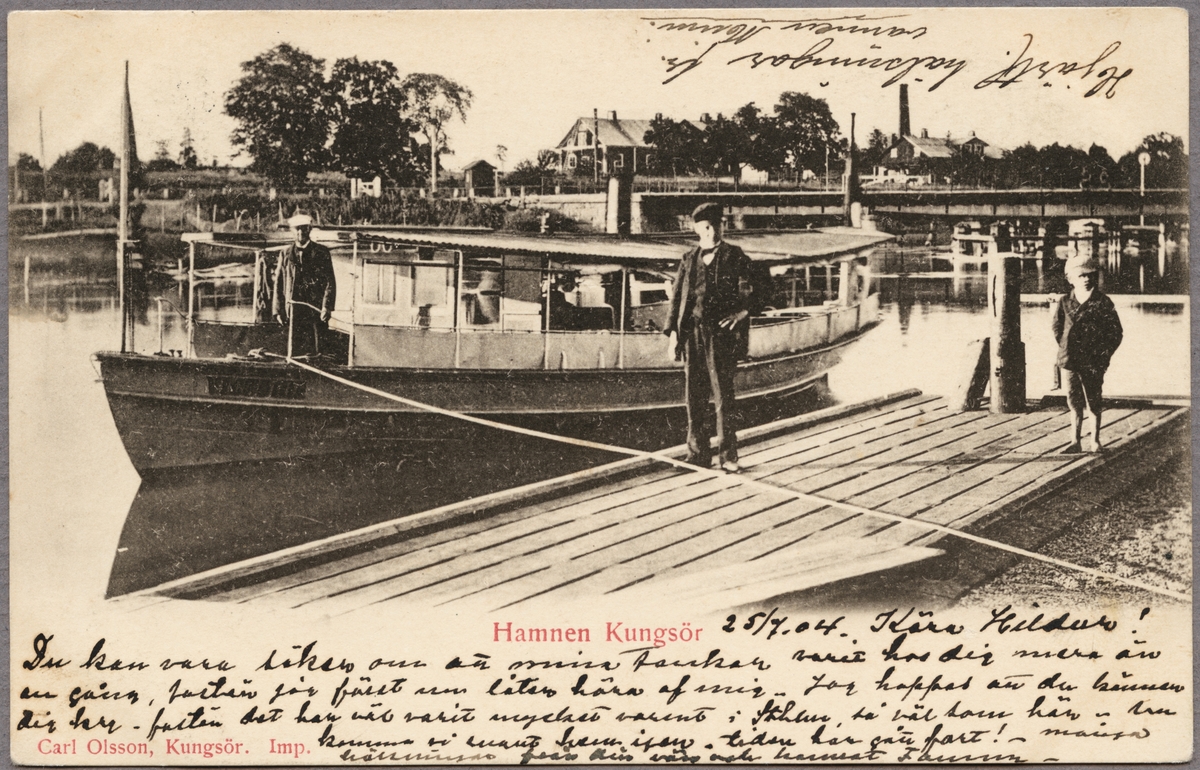 Hjärtl. hälsningar fr.
vännen
Hamnen Kungsör
25/7.04. Kära Hildur!
Du kan vara säker om att mina tankar varit hos dig mera än
en gång, fastän jag först nu låter höra af mig. Jag hoppas att du känner
dig kry - fastän det har väl varit mycket varmt i Sthlm, så väl som här -
komma vi snart hem igen. tiden har gått fort! - många
hälsningar från din vän och kamrat
Carl Olsson, Kungsör. Imp.